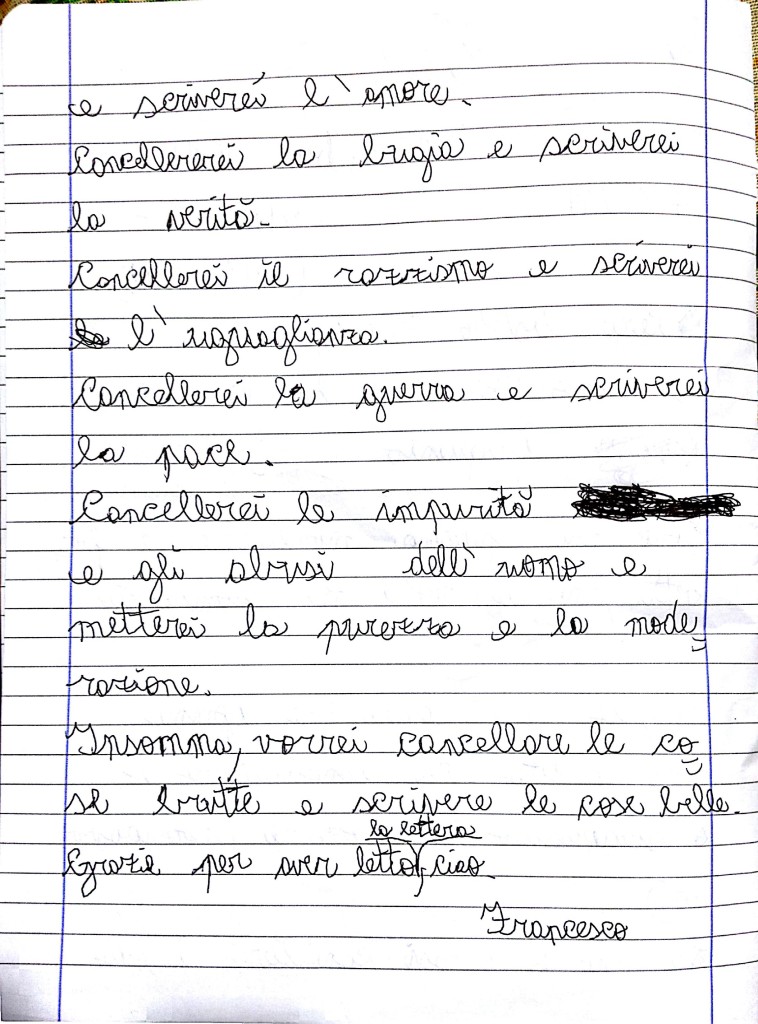 e scriverei l'amore.
Cancellererei la bugia e scriverei
la verità.
Cancellerei il razzismo e scriverei
l'uguaglianza.
Cancellerei la guerra e scriverei
la pace.
Cancellerei le impurità
e gli abusi dell'uomo e
metterei la purezza e la mode=
razione.
Insomma, vorrei cancellare le co=
se brutte e scrivere le cose belle.
la lettera
Grazie per aver letto, ciao.
Francesco